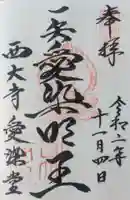 奉拝
令和二年
十一月四日
愛染明王
西大寺 愛染堂